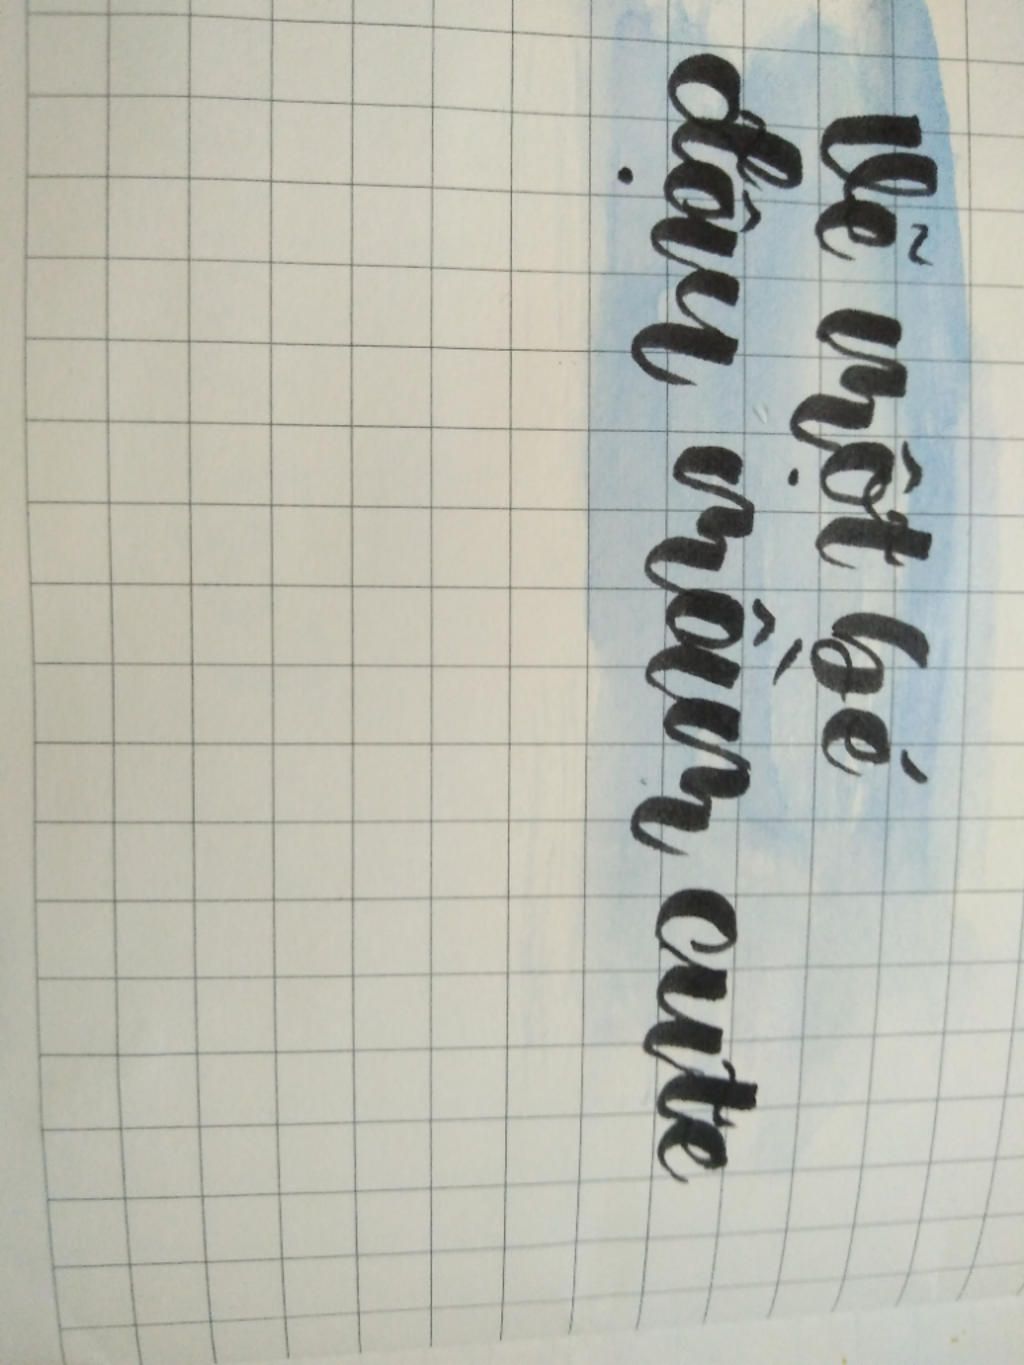 Vẽ một bé
đậu mầm cute